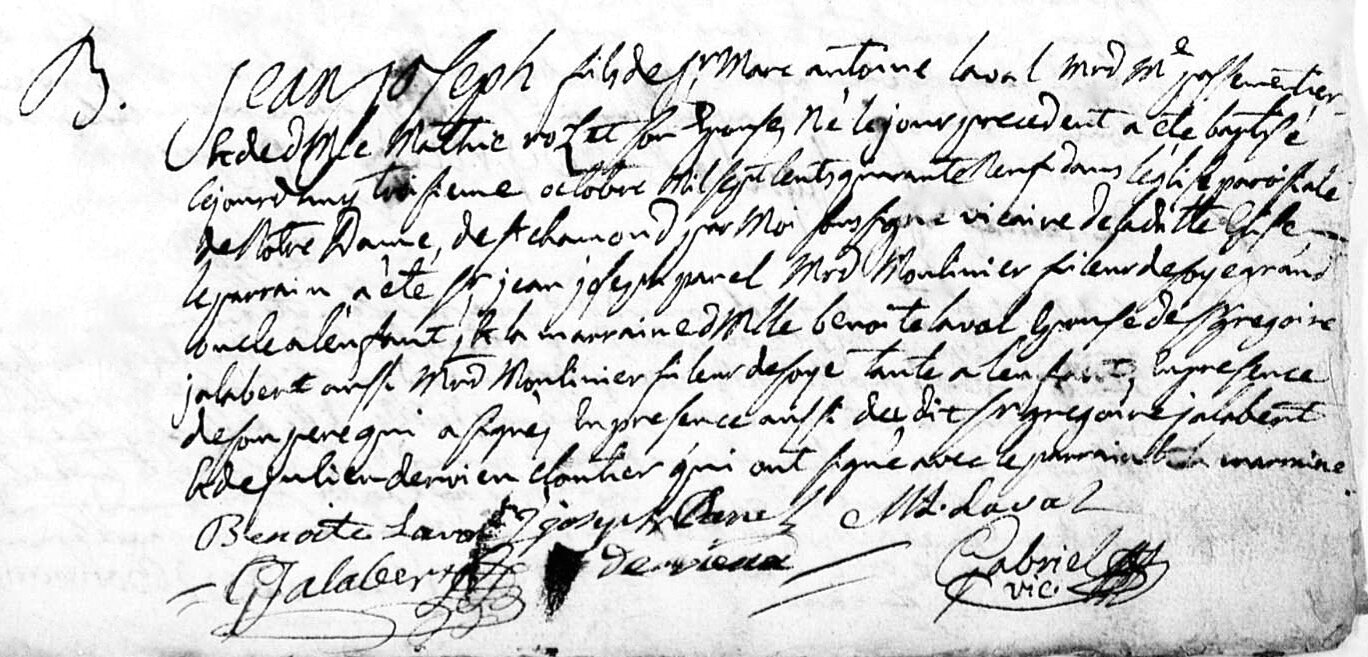 B.
jean joseph fils de sr Marc antoine laval Mrd Me passementier
& de dlle Mathie rozet son Epouse, né le jour precedent a été baptisé
cejourdhuy troisieme octobre Mil sept cents quarante neuf dans l'église paroissiale
de Notre Dame, de st chamond, par Moi soussigné vicaire de laditte Eglise
le parrain a été sr jean joseph parel Mrd Moulinier fileur de soye grand
oncle a l'enfant, & la marraine dlle benoite laval Epouse de sr gregoire
jalabert aussi Mrd Moulinier fileur de soye tante a l'enfant, En presence
de son pere qui a signé, En presence aussi dudit sr gregoire jalabert
& de julien dervieu cloutier qui ont signé avec le parrain & la marraine.
Benoite Laval j joseph Parel MA. Laval
G Jalabert dervieux Gabriel
vic.